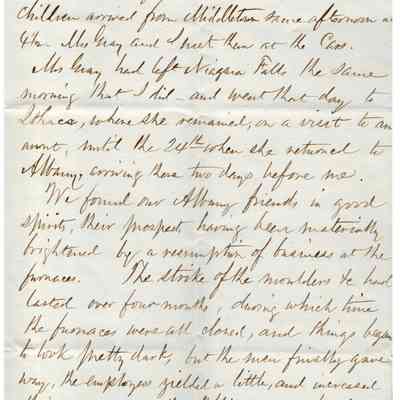 children arrived from Middletown same afternoon a
4 h. Mrs Gray and I met them at the Cars.
Mrs Gray had left Niagara Falls the same
morning that I did - and went that day to
Ithaca, where she remained, on a visit to an
aunt, until the 24th when she returned to
Albany, arriving there two days before me.
We found our Albany friends in good
spirits, their prospect having been materially
brightened by a resumption of business at the
furnaces. The strike of the moulders &c had
lasted over four months, during which time
the furnaces were all closed, and things began
to look pretty dark, but the men finally gave
way, the employers yielded a little, and increased